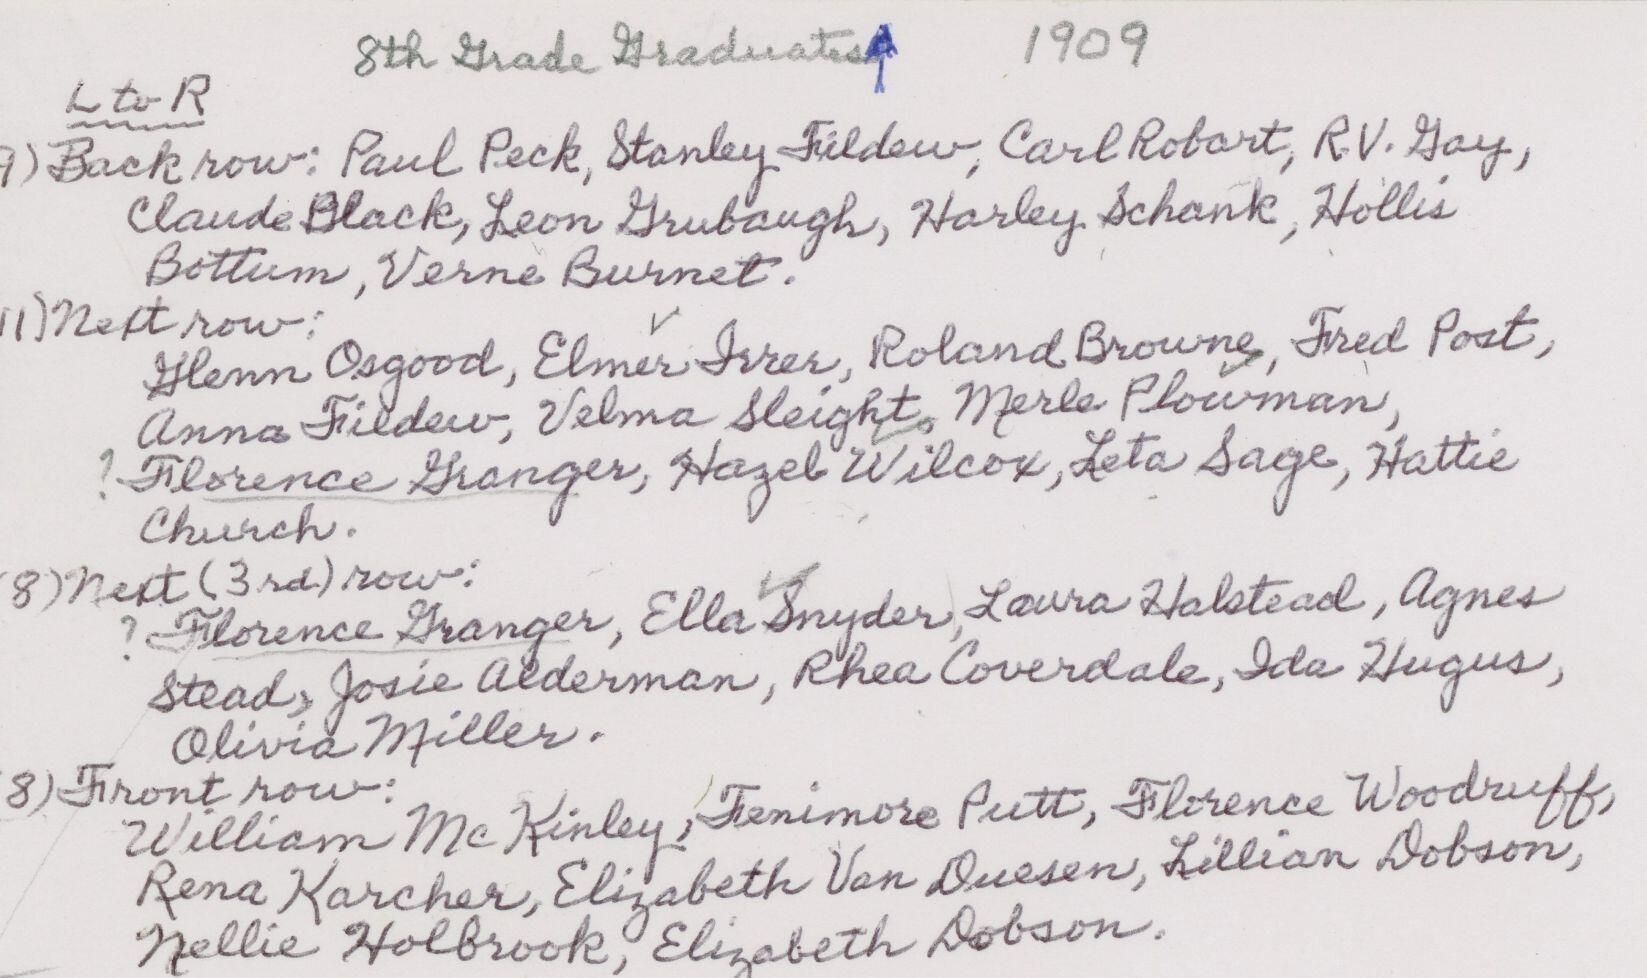 8th Grade Graduates 1909
L to R
9) Back row: Paul Peck, Stanley Fildew, Carl Robart, R.V. Gay,
Claude Black, Leon Grubaugh, Harley Schank, Hollis
Bottum, Verne Burnet.
11) Next row:
Glenn Osgood, Elmer Irrer, Roland Browne, Fred Post,
Anna Fildew, Velma Sleight, Merle Plowman,
? Florence Granger, Hazel Wilcox, Leta Sage, Hattie
Church.
(8) Next (3rd) row:
? Florence Granger, Ella Snyder, Laura Halstead, Agnes
Stead, Josie Alderman, Rhea Coverdale, Ida Hugus,
Olivia Miller.
(8) Front row:
William McKinley, Fenimore Putt, Florence Woodruff,
Rena Karcher, Elizabeth Van Duesen, Lillian Dobson,
Nellie Holbrook, Elizabeth Dobson.